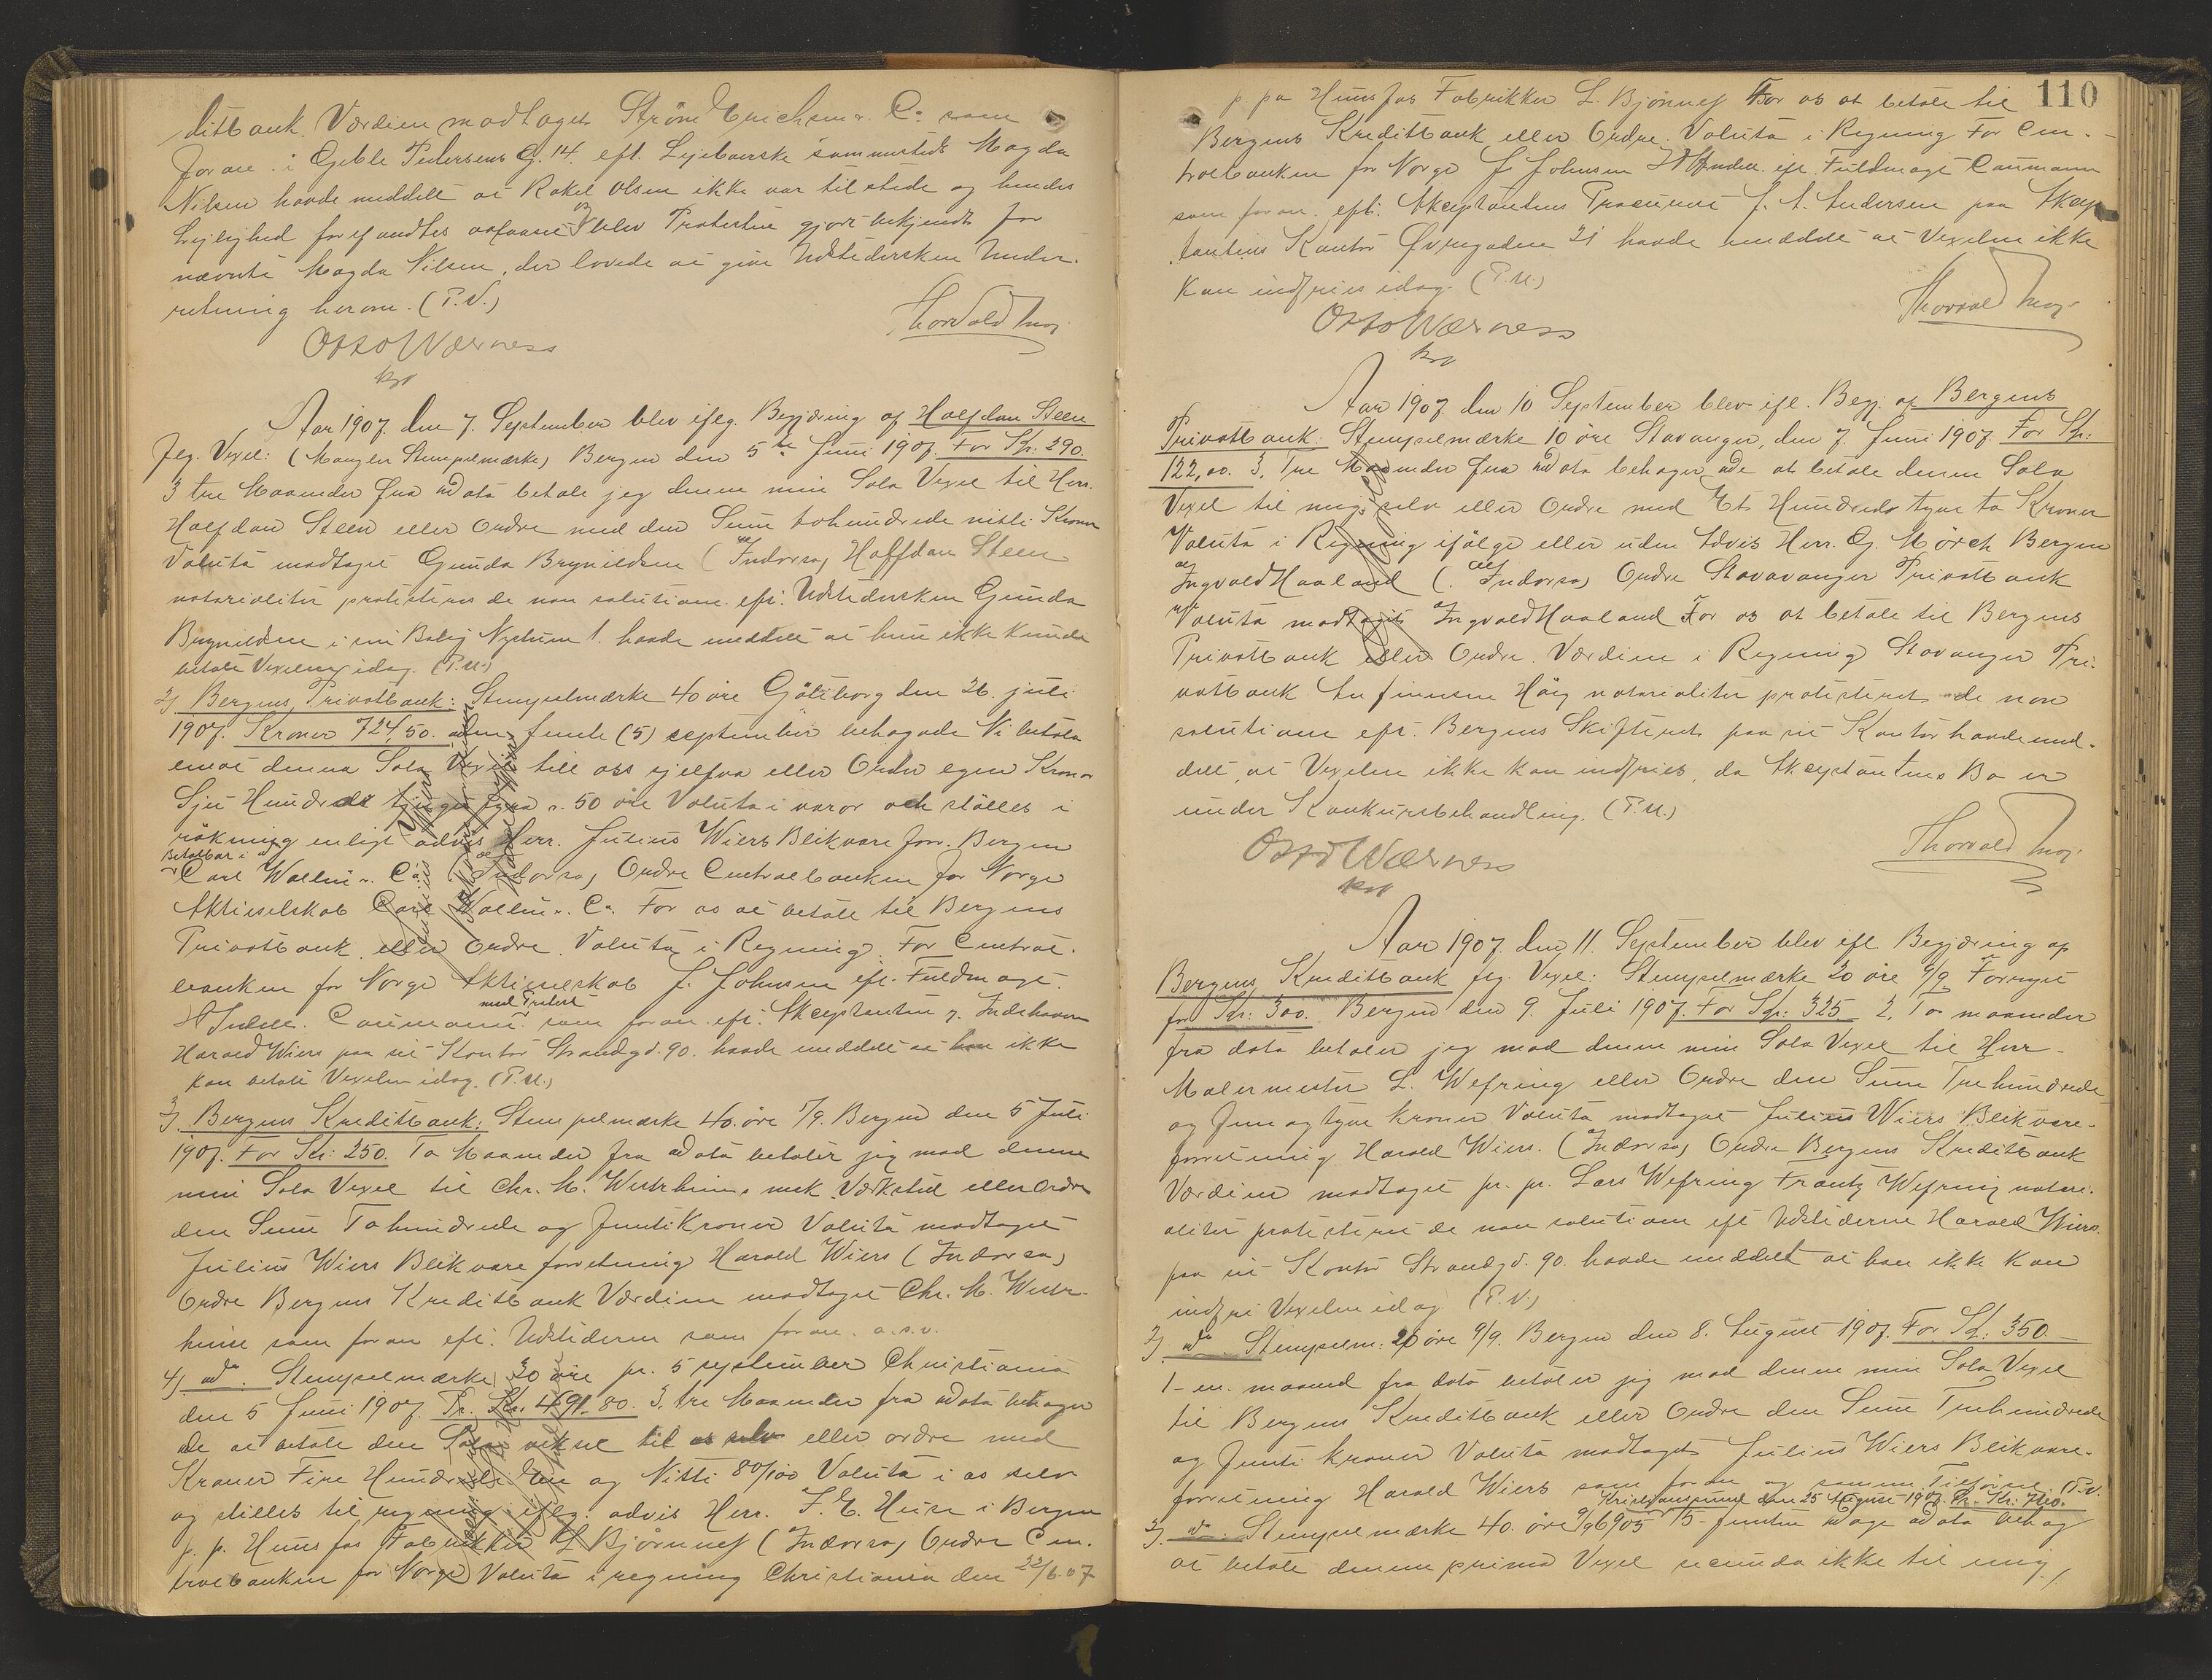 ditbank. Værdien modtaget Strøm Erichsen & Co som
foran i Geble Pedersens G. 14. eft. Lejeboerske sammesteds Magda
Nilsen havde meddelt at Rakel Olsen ikke var tilstede og hendes
Lejlighed forefandtes aflaaset og blev Protesten gjort bekjendt for
nævnte Magda Nilsen, der lovede at give Udstedersken Under-
retning herom. (P.V.)
Otto Værness Thorvald
Aar 1907. den 7. September blev ifølg. Begjæring af Halfdan Steen
flg. Vexel: (Mangler Stempelmærke) Bergen den 5te Juni 1907. For Kr. 290.
3 tre Maaneder fra dato betale jeg denne min Sola Vexel til Herr.
Halfdan Steen eller Ordre med den Sum tohundrede nitti Kroner
Valuta modtaget Gunda Brynildsen (Indorso) Halfdan Steen
notarialiter protesteres de non solutione eft. Udstedersken Gunda
Brynildsen i sin Bolig Nyhavn 1. havde meddelt at hun ikke kunde
betale Vexelen idag. (P.U.)
2) Bergens Privatbank: Stempelmærke 40 øre Göteborg den 26. juli
1907. Kronor 724,50. den femte (5) september behagade Ni betala
emot denna Sola Vexel till oss sjelfva eller Order egen Kronor
Sju Hundrade tjugu fyra & 50 öre Valuta i varor och ställes i
räkning enligt advis Herr. Julius Wiers Blikvare forr. Bergen
Betalbar i
Carl Wallin & Co. (Indorso) Ordre Centralbanken for Norge
Aktieselskab Carl Wallin & Co. For os at betale til Bergens
Privatbank eller Ordre. Valuta i Regning. For Central-
banken for Norge Aktieselskab J. Johnsen ifl. Fuldmagt.
med Protest
Caumann som foran eft. Akceptanten ɔ: Indehaver
Harald Wiers paa sit Kontor Strandgd. 90. havde meddelt at han ikke
kan betale Vexelen idag. (P.U.)
3) Bergens Kreditbank: Stempelmærke 40. øre 7/9. Bergen den 5 Juli
1907. For Kr: 250. To Maaneder fra dato betaler jeg mod denne
min Sola Vexel til Chr. M. mek. Værksted eller Ordre
den Sum Tohundrede og Femti Kroner Valuta modtaget
Julius Wiers Blikvare forretning Harald Wiers (Indorso)
Ordre Bergens Kreditbank Værdien modtaget Chr. M.
som foran eft. Udstederen som foran. o.s.v.
4) do. Stempelmærke 30 øre pr. 5 september Christiania
den 5 Juni 1907. Pr. Kr. 491.80. 3. tre Maaneder fra dato behager
de at betale den Sola veksel til os selv eller ordre med
Kroner Fire Hundrede En og Nitti 80/100 Valuta i os selv
og stilles til regning iflg. advis Herr. F. E. i Bergen
p. p. Hunsfos Fabrikker L Bjørnnes (Indorso) Ordre Cen-
tralbanken for Norge Valuta i regning Christiania den 22/6.07
110
p. pa Hunsfos Fabrikker L. Bjønnes For os at betale til
Bergens Kreditbank eller Ordre. Valuta i Regning For Cen-
tralbanken for Norge J. Johnsen ifl. Fuldmagt Caumann
som foran. eft. Akceptantens Procurist J. A. Andersen paa Akcep-
tantens Kontor Øvregaden 21 havde meddelt at Vexelen ikke
kan indfries idag. (P.U.)
Otto Værness Thorvald
Aar 1907. den 10 September blev ifl. Begj. af Bergens
Privatbank: Stempelmærke 10 øre Stavanger, den 7. Juni 1907. For Kr:
122,00. 3. Tre Maaneder fra dato behager de at betale denne Sola
Vexel til mig selv eller Ordre med Et Hundrede tyve to Kroner
Valuta i Regning ifølge eller uden Advis Herr. G. Mørch Bergen
Ingvald Haaland (Indorso) Ordre Stavanger Privatbank
Valuta modtaget Ingvald Haaland For os at betale til Bergens
Privatbank eller Ordre. Værdien i Regning Stavanger Pri-
vatbank Høeg notarialiter protesteret de non
solutione eft. Bergens Skifteret paa sit Kontor havde med-
delt, at Vexelen ikke kan indfries, da Akceptantens Bo er
under Konkursbehandling. (P.U.)
Otto Værness Thorvald
Aar 1907. den 11. September blev ifl. Begjæring af
Bergens Kreditbank flg. Vexel: Stempelmærke 20 øre 9/9 Fornyet
for Kr: 300. Bergen den 9. Juli 1907. For Kr: 325. 2. To maaneder
fra dato betaler jeg mod denne min Sola Vexel til Herr
Malermester L. Wefring eller Ordre den Sum Trehundrede
og Fem og tyve kroner Valuta modtaget Julius Wiers Blikvare-
forretning Harald Wiers. (Indorso) Ordre Bergens Kreditbank
Værdien modtaget pr. pr. Lars Wefring Frantz Wefring notari-
aliter protesteret de non solutione eft Udstederen Harald Wiers
paa sit Kontor Strandgd. 90. havde meddelt at han ikke kan
indfri Vexelen idag (P.V.)
2) do. Stempelm: 20 øre 9/9. Bergen den 8. August 1907. For Kr. 350
1 - en. maaned fra dato betaler jeg mod denne min Sola Vexel
til Bergens Kreditbank eller Ordre den Sum Trehundrede
og Femti kroner Valuta modtaget Julius Wiers Blikvare-
forretning Harald Wiers som foran og samme Tilførsel. (P.V.
Kristiansund den 25 August 1907. Pr. Kr.
3) do. Stempelmærke 40. øre 9/9 6905 15 - femten dage dato behag
at betale denne prima Vexel secunda ikke til mig